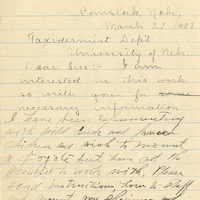 Comstock, Nebr.
March 27, 1933
Taxidermist Dept
University of Nebr.
Dear Sirs:- I am
interested in this work
so write you for some
necessary information
I have been experimenting
with birds and
chicken and wish to mount
a Coyote but have not the
to work with. Please
send instructions how to stuff
and mount